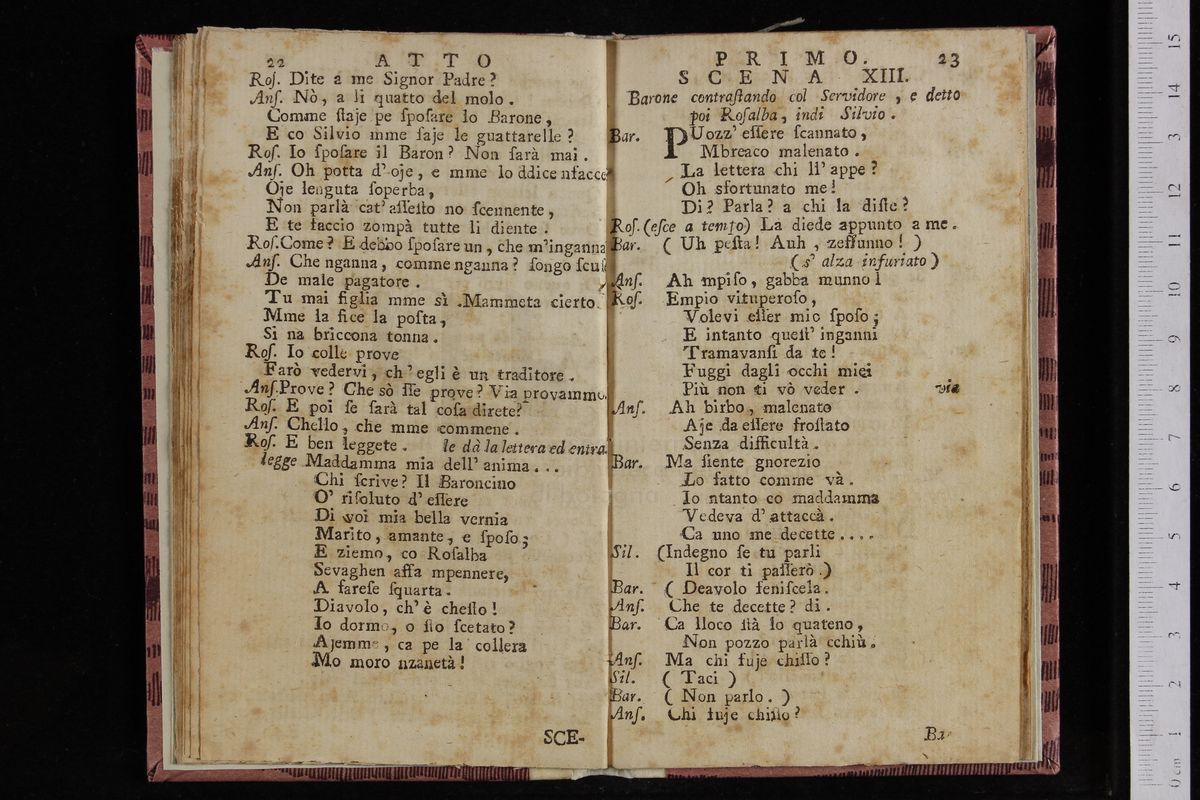 22 ATTO
Roſ. Dite a me Signor Padre?
Anſ. Nò, a li quatto del molo.
Comme ſtaje pe ſpoſare lo Barone,
E co Silvio mme faje le guattarelle?
Roſ. Io ſpoſare il Baron? Non ſarà mai.
Anſ. Oh potta d' oje, e mme lo ddice nfacce
Oje lenguta ſoperba,
Non parlà cat' aſſeſto no ſcennente,
E te faccio zompà tutte li diente.
Roſ. Come? E debbo ſpoſare un, che m'inganna
Anſ. Che nganna, comme nganna? ſongo ſcuſ
De male pagatore.
Tu mai figlia mme sì. Mammeta cierto
Mme la fice la poſta,
Si na briccona tonna.
Roſ. Io colle prove
Farò vedervi, ch' egli è un traditore.
Anſ. Prove? Che sò ſſe prove? Via provammo.
Roſ. E poi ſe ſarà tal coſa direte?
Anſ. Chello, che mme commene.
Roſ. E ben leggete. le dà la lettera ed entra.
legge Maddamma mia dell' anima...
Chi ſcrive? Il Baroncino
O' riſoluto d' eſſere
Di voi mia bella vernia
Marito, amante, e ſpoſo;
E ziemo, co Roſalba
Sevaghen affa mpennere,
A fareſe ſquarta.
Diavolo, ch' è cheſſo!
Io dormo, o ſto ſcetato?
Ajemme, ca pe la collera
Mo moro nzanetà!
SCE-
PRIMO. 23
SCENA XIII.
Barone contraſtando col Servidore, e detto
poi Roſalba, indi Silvio.
Bar. PUozz' eſſere ſcannato,
Mbreaco malenato.
La lettera chi ll' appe?
Oh sfortunato me!
Di? Parla? a chi la diſte?
Roſ. (eſce a tempo) La diede appunto a me.
Bar. ( Uh peſta! Auh, zeffunno! )
(s' alza infuriato)
Anſ. Ah mpiſo, gabba munno!
Roſ. Empio vituperoſo,
Volevi eſſer mio ſpoſo;
E intanto queſt' inganni
Tramavanſi da te!
Fuggi dagli occhi miei
Più non ti vò veder. via
Anſ. Ah birbo, malenato
Aje da eſſere froſtato
Senza difficultà.
Bar. Ma ſiente gnorezio
Lo fatto comme và.
Io ntanto co maddamma
Vedeva d' attaccà.
Ca uno me decette....
Sil. (Indegno ſe tu parli
Il cor ti paſſerò.)
Bar. ( Deavolo feniſcela.
Anſ. Che te decette? di.
Bar. Ca lloco ſtà lo quateno,
Non pozzo parlà cchiù.
Anſ. Ma chi fuje chiſſo?
Sil. ( Taci )
Bar. ( Non parlo. )
Anſ. Chi fuje chiſſo?
Ba-